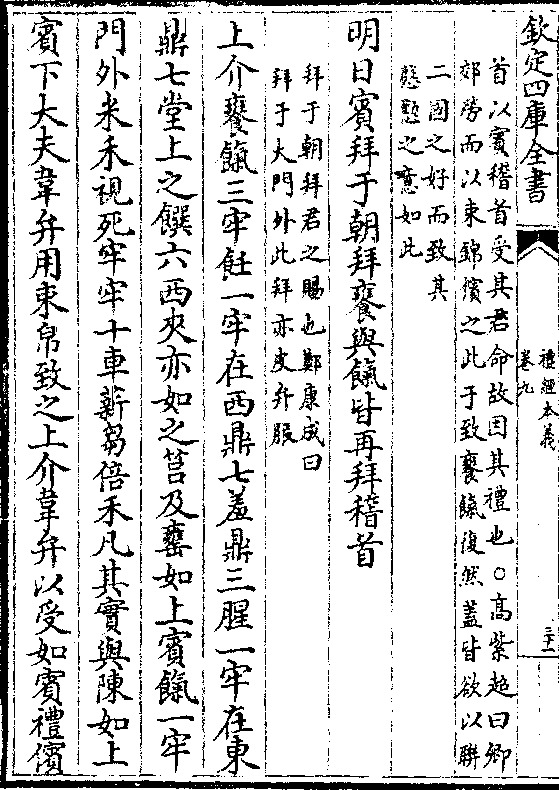 欽定四庫全書
禮經本義
卷九
三十一
首以賓稽首受其君命故因其禮也○高紫超曰卿
郊勞而以束錦儐之此于致饔餼復然蓋皆欲以聯
二國之好而致其
慇懃之意如此
明日賓拜于朝拜饔與餼皆再拜稽首
拜于朝拜君之賜也鄭康成曰
拜于大門外此拜亦皮弁服
上介饔餼三牢飪一牢在西鼎七羞鼎三腥一牢在東
鼎七堂上之饌六西夾亦如之筥及罋如上賓餼一牢
門外米禾視死牢牢十車薪芻倍禾凡其實與陳如上
賓下大夫韋弁用束帛致之上介韋弁以受如賓禮儐